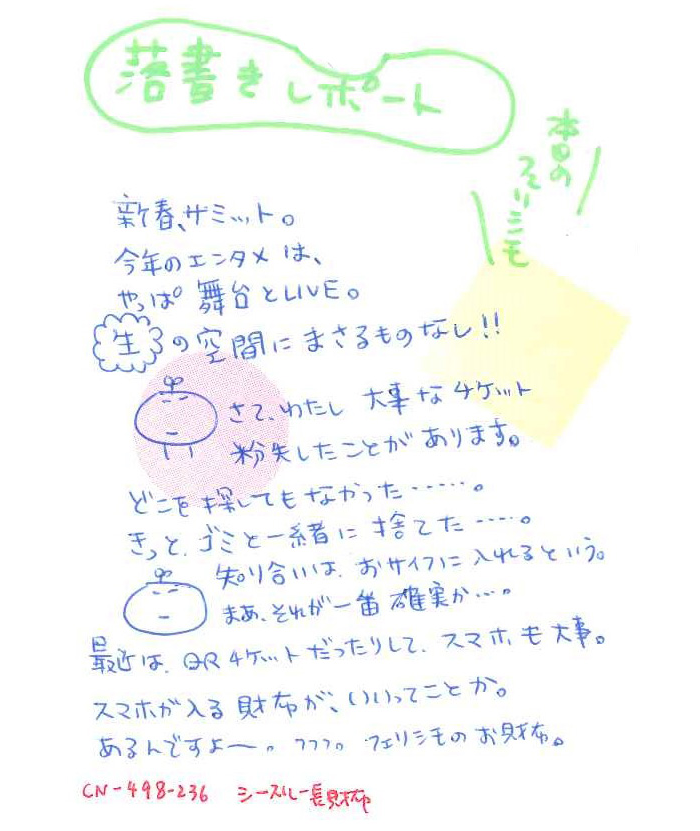 落書きレポート
本日の
フェリシモ
新春、サミット。
今年のエンタメは、
やっぱ 舞台とLIVE。
生の空間にまさるものなし!!
さて、わたし 大事なチケット
粉失したことがあります。
どこを探してもなかった……。
きっと、ゴミと一緒に捨てた……。
知り合いは、おサイフに入れるという。
まあ、それが一番確実か…。
最近は、QRチケットだったりして、スマホも大事。
スマホが入る財布が、いいってことか。
あるんですよ〜。フフフ。フェリシモのお財布。
CN-498-236 シースルー長財布